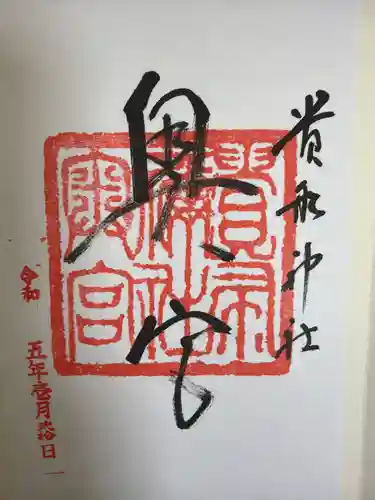 貴船神社
奥宮
貴布
禰社
奥宮
令和五年壱月拾日